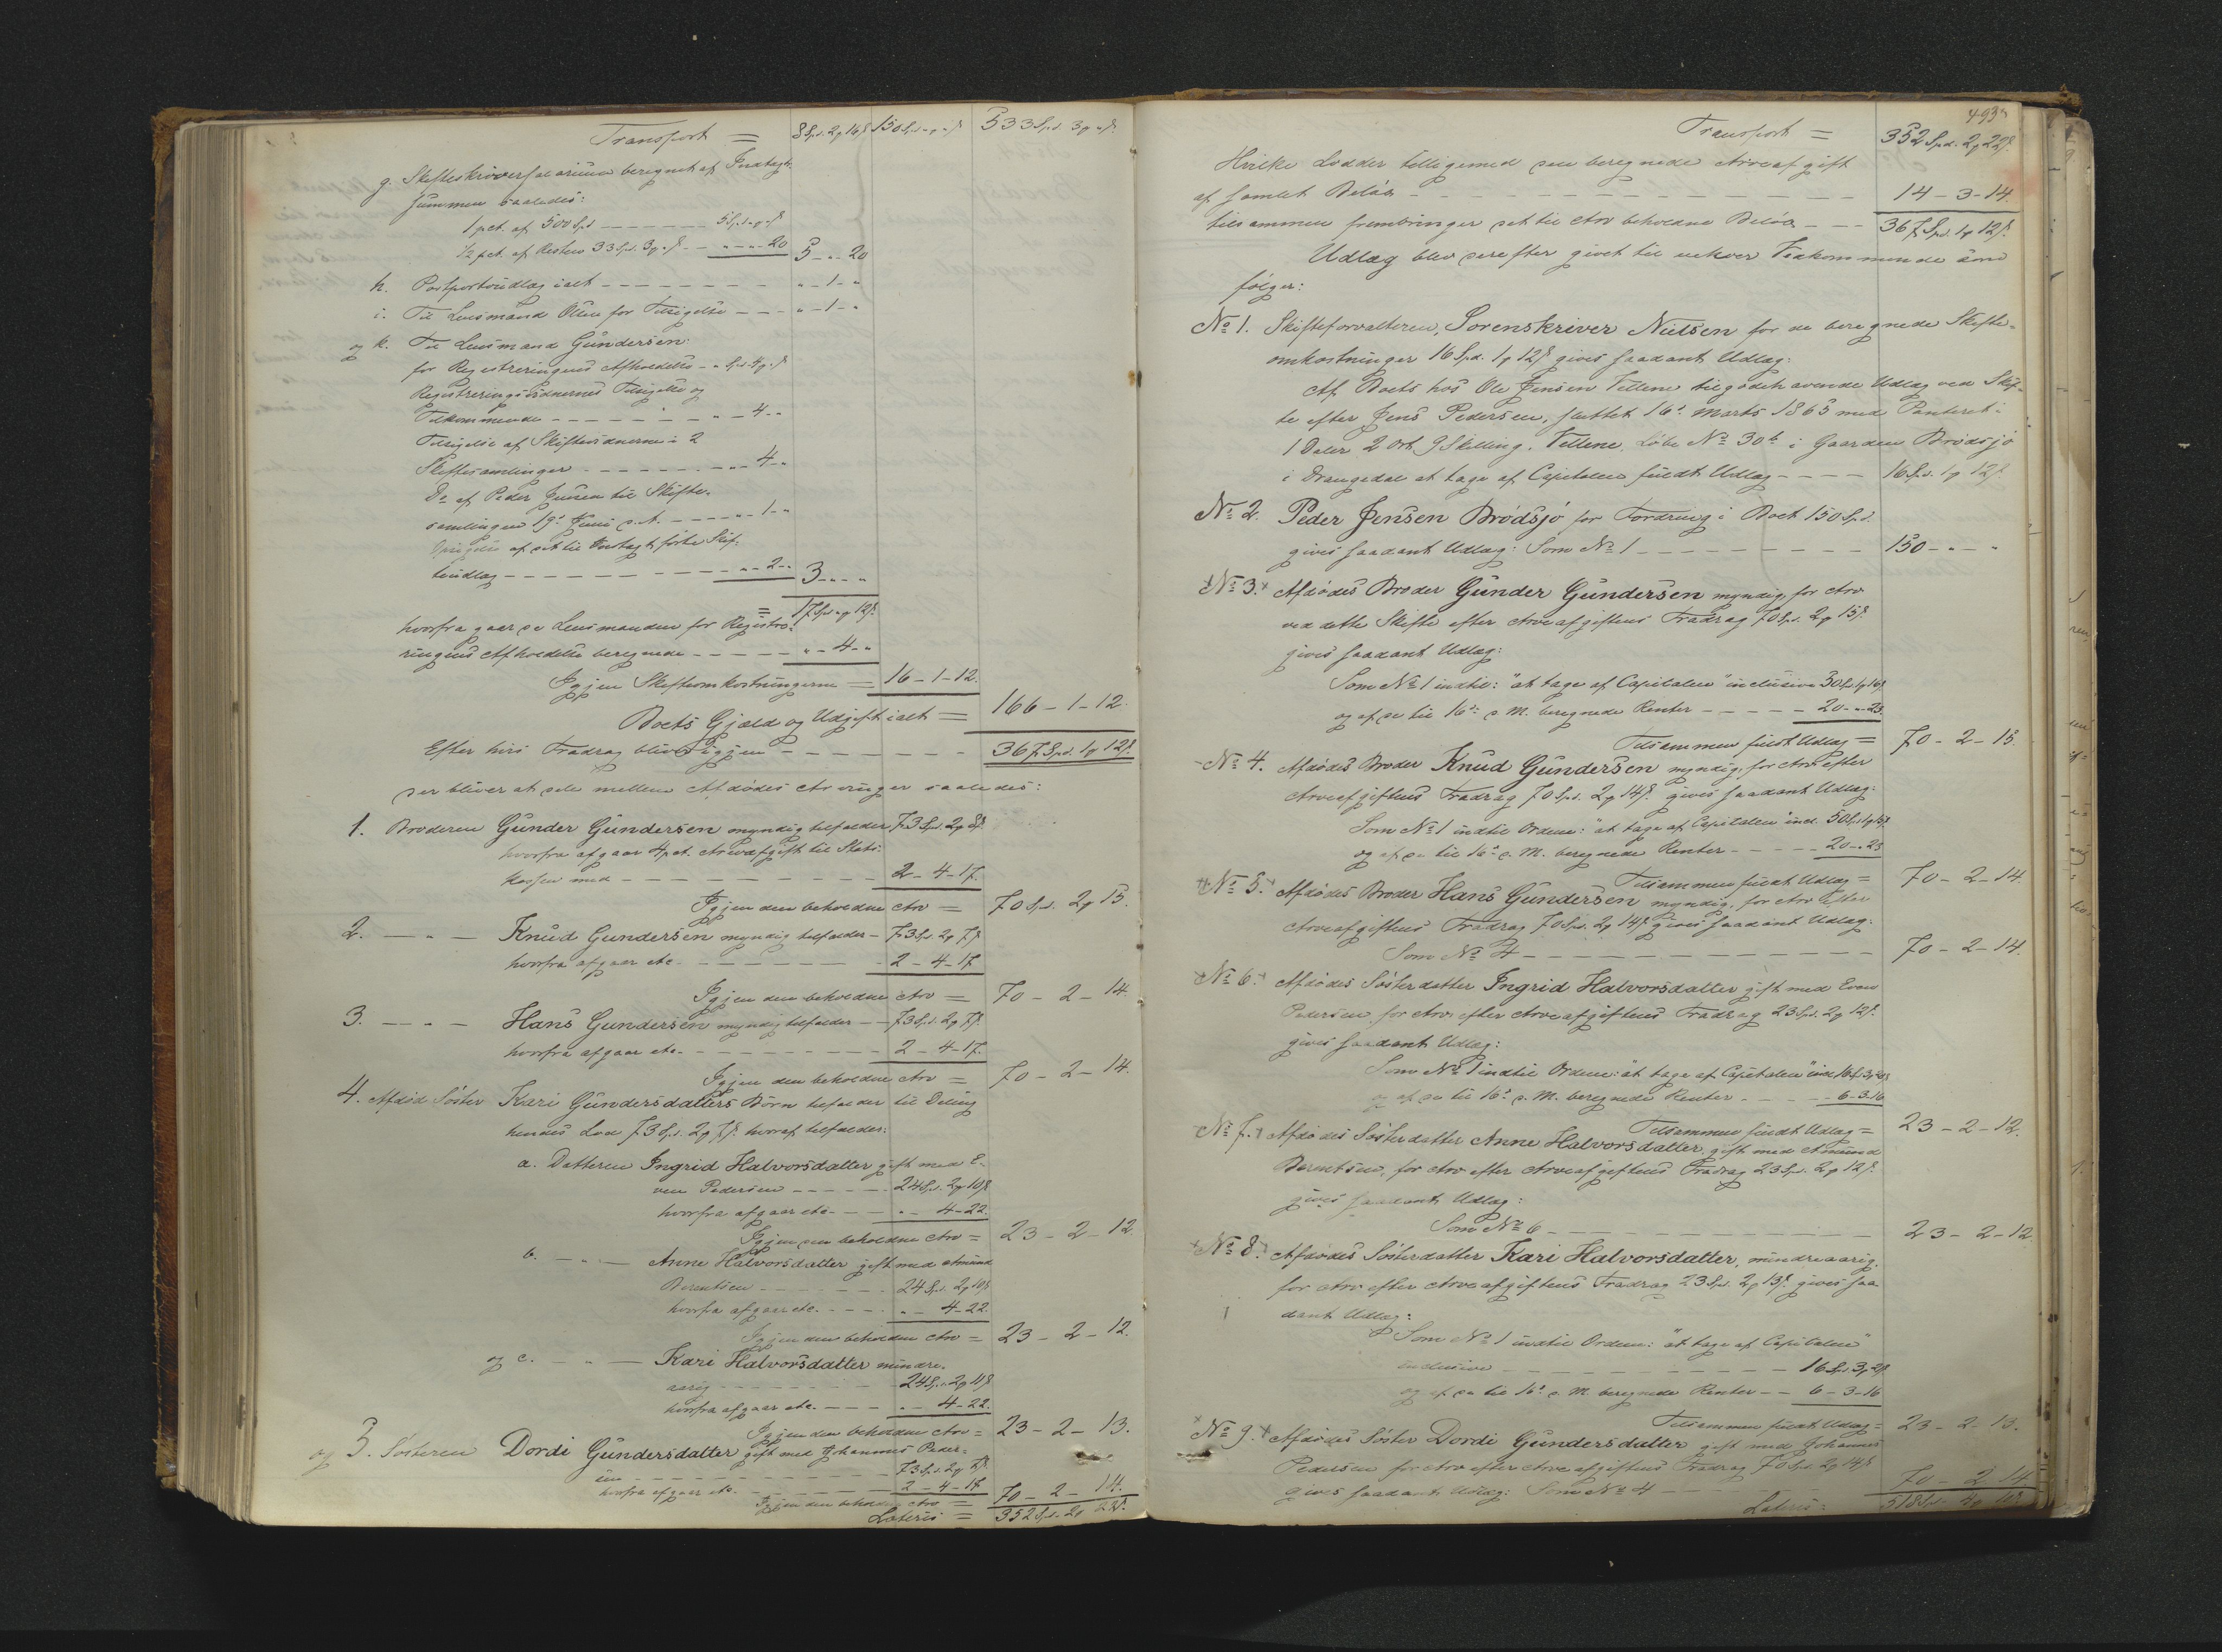 Transport = 8 Spd. 2 ₰ 16 ß 150 Spd. " ₰ " ß 533 Spd. 3 ₰ " ß
g. Skifteskriversalarium beregnet af Indtægts-
summen saaledes:
1 pct. af 500 Spd. – 5 Spd. " ₰ " ß
1/2 pct. af Resten 33 Spd. 3 ₰ " ß – " – " – 20 5 – " – 20
h. Postportoudlæg ialt – " – 1 – "
i. Til Lensmand Olsen for Tilsigelse – " – 1 – "
og k. Til Lensmand Gundersen:
for Registreringens Afholdelse – " Spd. 4 ₰ " ß
Registreringsvidnernes Tilsigelse og
Tilkommende – " – 4 – "
Tilsigelse af Skiftevidnerne i 2
Skiftesamlinger – " – 4 – "
Do af Peder Jensen til Skifte-
samlingen 19de Juni d. A. – " – 1 – "
af det til Indtægt førte Skif-
teudlæg – " – 2 – " 3 – " – "
= 17 Spd. " ₰ 12 ß
hvorfra gaar de Lensmanden for Registre-
ringens Afholdelse beregnede – " – 4 – "
Igjen Skifteomkostningerne = 16 – 1 – 12.
Boets Gjæld og Udgift ialt = 166 – 1 – 12.
Efter hvis Fradrag bliver igjen – 367 Spd. 1 ₰ 12 ß
der bliver at dele mellem Afdødes Arvinger saaledes:
1. Broderen Gunder Gundersen myndig tilfalder 73 Spd. 2 ₰ 8 ß
hvorfra afgaar 4 pct. Arveafgift til Stats-
kassen med – 2 – 4 – 17.
Igjen den beholdne Arv = 70 Spd. 2 ₰ 15.
2. – " – Knud Gundersen myndig tilfalder – 73 Spd. 2 ₰ 7 ß
hvorfra afgaar etc. – 2 – 4 – 17
Igjen den beholdne Arv = 70 – 2 – 14.
3. – " – Hans Gundersen myndig tilfalder – 73 Spd. 2 ₰ 7 ß
hvorfra afgaar etc. – 2 – 4 – 17.
Igjen den beholdne Arv = 70 – 2 – 14.
4. Afdød Søster Kari Gundersdatters Børn tilfalder til Deling
hendes Lod 73 Spd. 2 ₰ 7 ß hvoraf tilfalder:
a. Datteren Ingrid Halvorsdatter gift med E-
ven Pedersen – 24 Spd. 2 ₰ 10 ß
hvorfra afgaar etc. – " – 4 – 22.
Igjen den beholdne Arv = 23 – 2 – 12.
b. – " – Anne Halvorsdatter gift med Amund
Berentsen – 24 Spd. 2 ₰ 10 ß
hvorfra afgaar etc. – " – 4 – 22.
Igjen den beholdne Arv = 23 – 2 – 12.
og c. – " – Kari Halvorsdatter mindre-
aarig – 24 Spd. 2 ₰ 11 ß
hvorfra afgaar etc. – " – 4 – 22.
Igjen den beholdne Arv = 23 – 2 – 13.
og 5. Søsteren Dordi Gundersdatter gift med Johannes Peder-
sen – 73 Spd. 2 ₰ 7 ß
hvorfra afgaar etc. – 2 – 4 – 17
Igjen den beholdne Arv = 70 – 2 – 14.
Lateris = 352 Spd. 2 ₰ 22 ß
493
Transport = 352 Spd. 2 ₰ 22 ß
Hvilke Lodder tilligemed den beregnede Arveafgift
af samlet Beløb – 14 – 3 – 14.
tilsammen frembringer det til Arv beholdne Beløb – 367 Spd. 1 ₰ 12 ß
Udlæg blev derefter givet til enhver Vedkommende som
følger:
No 1. Skifteforvalteren, Sorenskriver Nielsen for de beregnede Skifte-
omkostninger 16 Spd. 1 ₰ 12 ß gives saadant Udlæg:
Af Boets hos Ole Jensen Vellene tilgodehavende Udlæg ved Skif-
te efter Jens Pedersen, sluttet 16de Marts 1865 med Panteret i
1 Daler 2 Ort 9 Skilling, Vellene, Løbe No 30b i Gaarden Brødsjø
i Drangedal at tage af Capitalen fuldt Udlæg – 16 Spd. 1 ₰ 12 ß
No 2. Peder Jensen Brødsjø for Fordring i Boet 150 Spd.
gives saadant Udlæg: Som No 1 – 150 – " – "
No 3. Afdødes Broder Gunder Gundersen myndig, for Arv
ved dette Skifte efter Arveafgiftens Fradrag 70 Spd. 2 ₰ 15 ß
gives saadant Udlæg:
Som No 1 indtil: "at tage af Capitalen" inclusive 50 Spd. 1 ₰ 16 ß
og af de til 16de d. M. beregnede Renter – 20 – " – 23.
Tilsammen fuldt Udlæg = 70 – 2 – 15.
No 4. Afdødes Broder Knud Gundersen myndig, for Arv efter
Arveafgiftens Fradrag 70 Spd. 2 ₰ 14 ß gives saadant Udlæg:
Som No 1 indtil Ordene: "at tage af Capitalen" incl. 50 Spd. 1 ₰ 15 ß
og af de til 16de d. M. beregnede Renter – 20 – " – 23
Tilsammen fuldt Udlæg = 70 – 2 – 14.
No 5. Afdødes Broder Hans Gundersen myndig, for Arv efter
Arveafgiftens Fradrag 70 Spd. 2 ₰ 14 ß gives saadant Udlæg:
Som No 4 – 70 – 2 – 14.
No 6. Afdødes Søsterdatter Ingrid Halvorsdatter gift med Even
Pedersen, for Arv efter Arveafgiftens Fradrag 23 Spd. 2 ₰ 12 ß
gives saadant Udlæg:
Som No 1 indtil Ordene: "at tage af Capitalen" incl. 16 Spd. 3 ₰ 20 ß
og af de til 16de d. M. beregnede Renter – 6 – 3 – 16
Tilsammen fuldt Udlæg = 23 – 2 – 12.
No 7. Afdødes Søsterdatter Anne Halvorsdatter, gift med Amund
Berentsen, for Arv efter Arveafgiftens Fradrag 23 Spd. 2 ₰ 12 ß
gives saadant Udlæg:
Som No 6 – 23 – 2 – 12.
No 8. Afdødes Søsterdatter Kari Halvorsdatter, mindreaarig,
for Arv efter Arveafgiftens Fradrag 23 Spd. 2 ₰ 13 ß gives saa-
dant Udlæg:
Som No 1 indtil Ordene: "at tage af Capitalen"
inclusive – 16 Spd. 3 ₰ 21 ß
og af de til 16de d. M. beregnede Renter – 6 – 3 – 16
Tilsammen fuldt Udlæg = 23 – 2 – 13.
No 9. Afdødes Søster Dordi Gundersdatter gift med Johannes
Pedersen for Arv efter Arveafgiftens Fradrag 70 Spd. 2 ₰ 14 ß
gives saadant Udlæg: Som No 4 – 70 – 2 – 14
Lateris: 518 Spd. 4 ₰ 10 ß